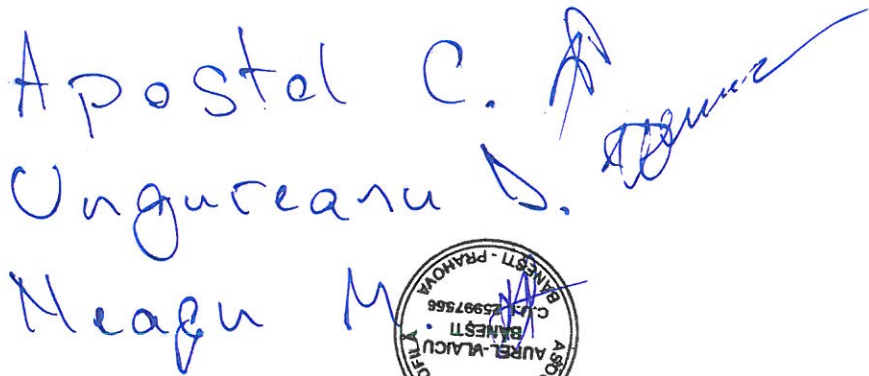 Apostol C.
Ungureanu D.
Neagu M.
BĂNEȘTI - PRAHOVA
C.U.I. 25997556
BĂNEȘTI
AUREL-VLAICU